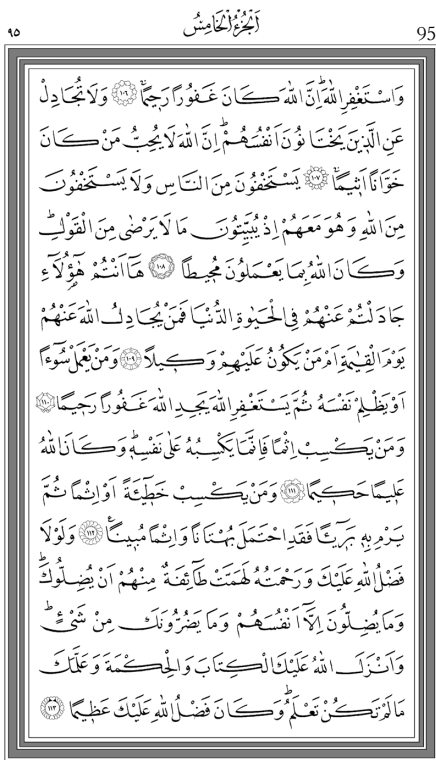 ٩٥ اَلْجُزْءُ الْخَامِسُ 95
وَاسْتَغْفِرِ اللّٰهَۜ اِنَّ اللّٰهَ كَانَ غَفُوراً رَحٖيماًۚ ﴿١٠٦﴾ وَلَا تُجَادِلْ
عَنِ الَّذٖينَ يَخْتَانُونَ اَنْفُسَهُمْۜ اِنَّ اللّٰهَ لَا يُحِبُّ مَنْ كَانَ
خَوَّاناً اَثٖيماًۚ ﴿١٠٧﴾ يَسْتَخْفُونَ مِنَ النَّاسِ وَلَا يَسْتَخْفُونَ
مِنَ اللّٰهِ وَهُوَ مَعَهُمْ اِذْ يُبَيِّتُونَ مَا لَا يَرْضٰى مِنَ الْقَوْلِۜ
وَكَانَ اللّٰهُ بِمَا يَعْمَلُونَ مُحٖيطاً ﴿١٠٨﴾ هَٓا اَنْتُمْ هٰٓؤُلَٓاءِ
جَادَلْتُمْ عَنْهُمْ فِي الْحَيٰوةِ الدُّنْيَا فَمَنْ يُجَادِلُ اللّٰهَ عَنْهُمْ
يَوْمَ الْقِيٰمَةِ اَمْ مَنْ يَكُونُ عَلَيْهِمْ وَكٖيلاً ﴿١٠٩﴾ وَمَنْ يَعْمَلْ سُٓوءاً
اَوْ يَظْلِمْ نَفْسَهُ ثُمَّ يَسْتَغْفِرِ اللّٰهَ يَجِدِ اللّٰهَ غَفُوراً رَحٖيماً ﴿١١٠﴾
وَمَنْ يَكْسِبْ اِثْماً فَاِنَّمَا يَكْسِبُهُ عَلٰى نَفْسِهٖۜ وَكَانَ اللّٰهُ
عَلٖيماً حَكٖيماً ﴿١١١﴾ وَمَنْ يَكْسِبْ خَطٖٓيـَٔةً اَوْ اِثْماً ثُمَّ
يَرْمِ بِهٖ بَرٖٓيـٔاً فَقَدِ احْتَمَلَ بُهْتَاناً وَاِثْماً مُبٖيناًۚ ﴿١١٢﴾ وَلَوْلَا
فَضْلُ اللّٰهِ عَلَيْكَ وَرَحْمَتُهُ لَهَمَّتْ طَٓائِفَةٌ مِنْهُمْ اَنْ يُضِلُّوكَۜ
وَمَا يُضِلُّونَ اِلَّٓا اَنْفُسَهُمْ وَمَا يَضُرُّونَكَ مِنْ شَيْءٍۜ
وَاَنْزَلَ اللّٰهُ عَلَيْكَ الْكِتَابَ وَالْحِكْمَةَ وَعَلَّمَكَ
مَا لَمْ تَكُنْ تَعْلَمُۜ وَكَانَ فَضْلُ اللّٰهِ عَلَيْكَ عَظٖيماً ﴿١١٣﴾